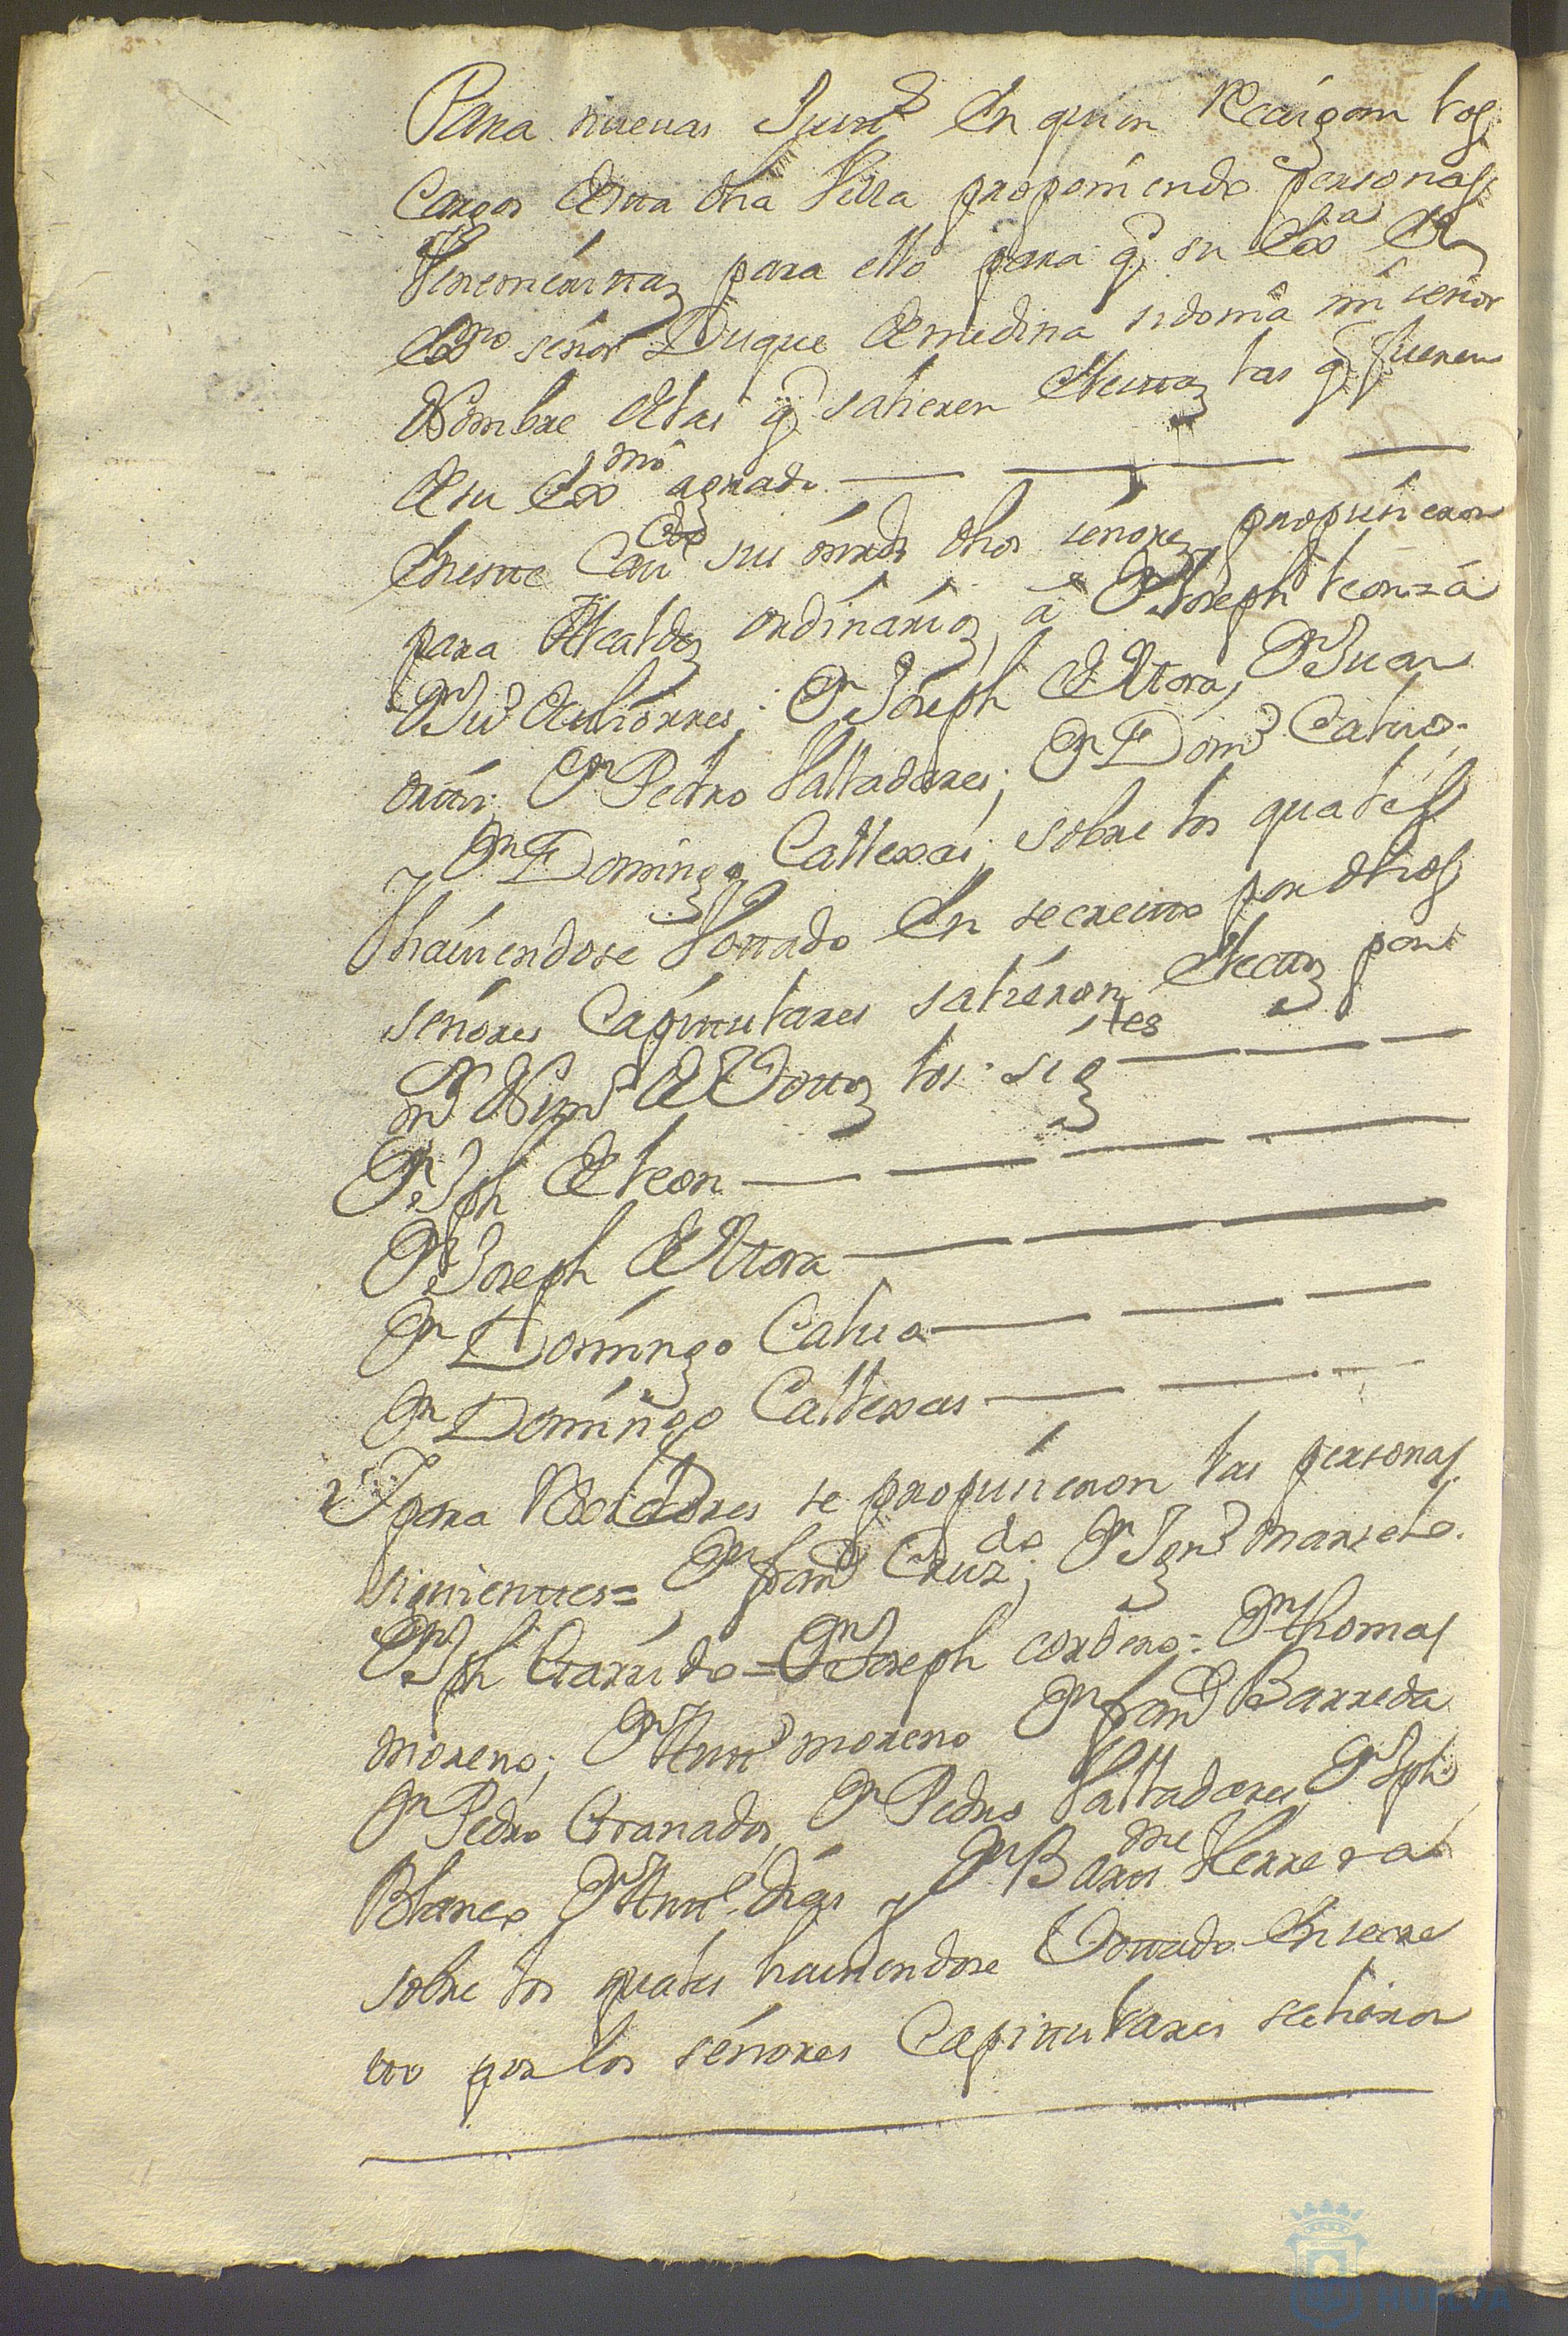 Para nueuas Just.s En quien Recaigan los
Cargos desta dha Villa proponiendo personas
Venemeritas para ello para q. su Exa El
Exmo señor Duque de medina sidonia mi señor
Nombre de las q. salieren Electas las q. fueren
de su Exmo agrado
En este Cauo sus mrds dhos señores propusieron
para Alcaldes ordinarios, a Dn Joseph leon = a
Dn Ju.o Gutiérres; Dn Joseph de Mora, Dn Juan
ortis; Dn Pedro Valladares; Dn Dom.o Caluo;
Dn Domingo Callexas; sobre los quales
Y hauiendose Vottado En secretto por dhos
señores Capittulares salieron Electtos por
m.r Num.o de Vottos los sig.tes
Dn Jph de leon
Dn Joseph de Mora
Dn Domingo Caluo
Dn Domingo Callexas
Y para Rexidores se propusieron las personas
siguienttes = Dn fran.co Cruz.do; Dn Ign.o marselo.
Dn Jph Garrido = Dn Joseph cordero = Dn thomas
moreno; Dn Antt.o moreno Dn fran.co Barreda
Dn Pedro Granados, Dn Pedro Valladares, Dn Jph
Blanco Dn Antt.o dias y Dn Barme Herrera
sobre los quales hauiendose Vottado En secre
tto por los señores Capittulares salieron
HUELVA